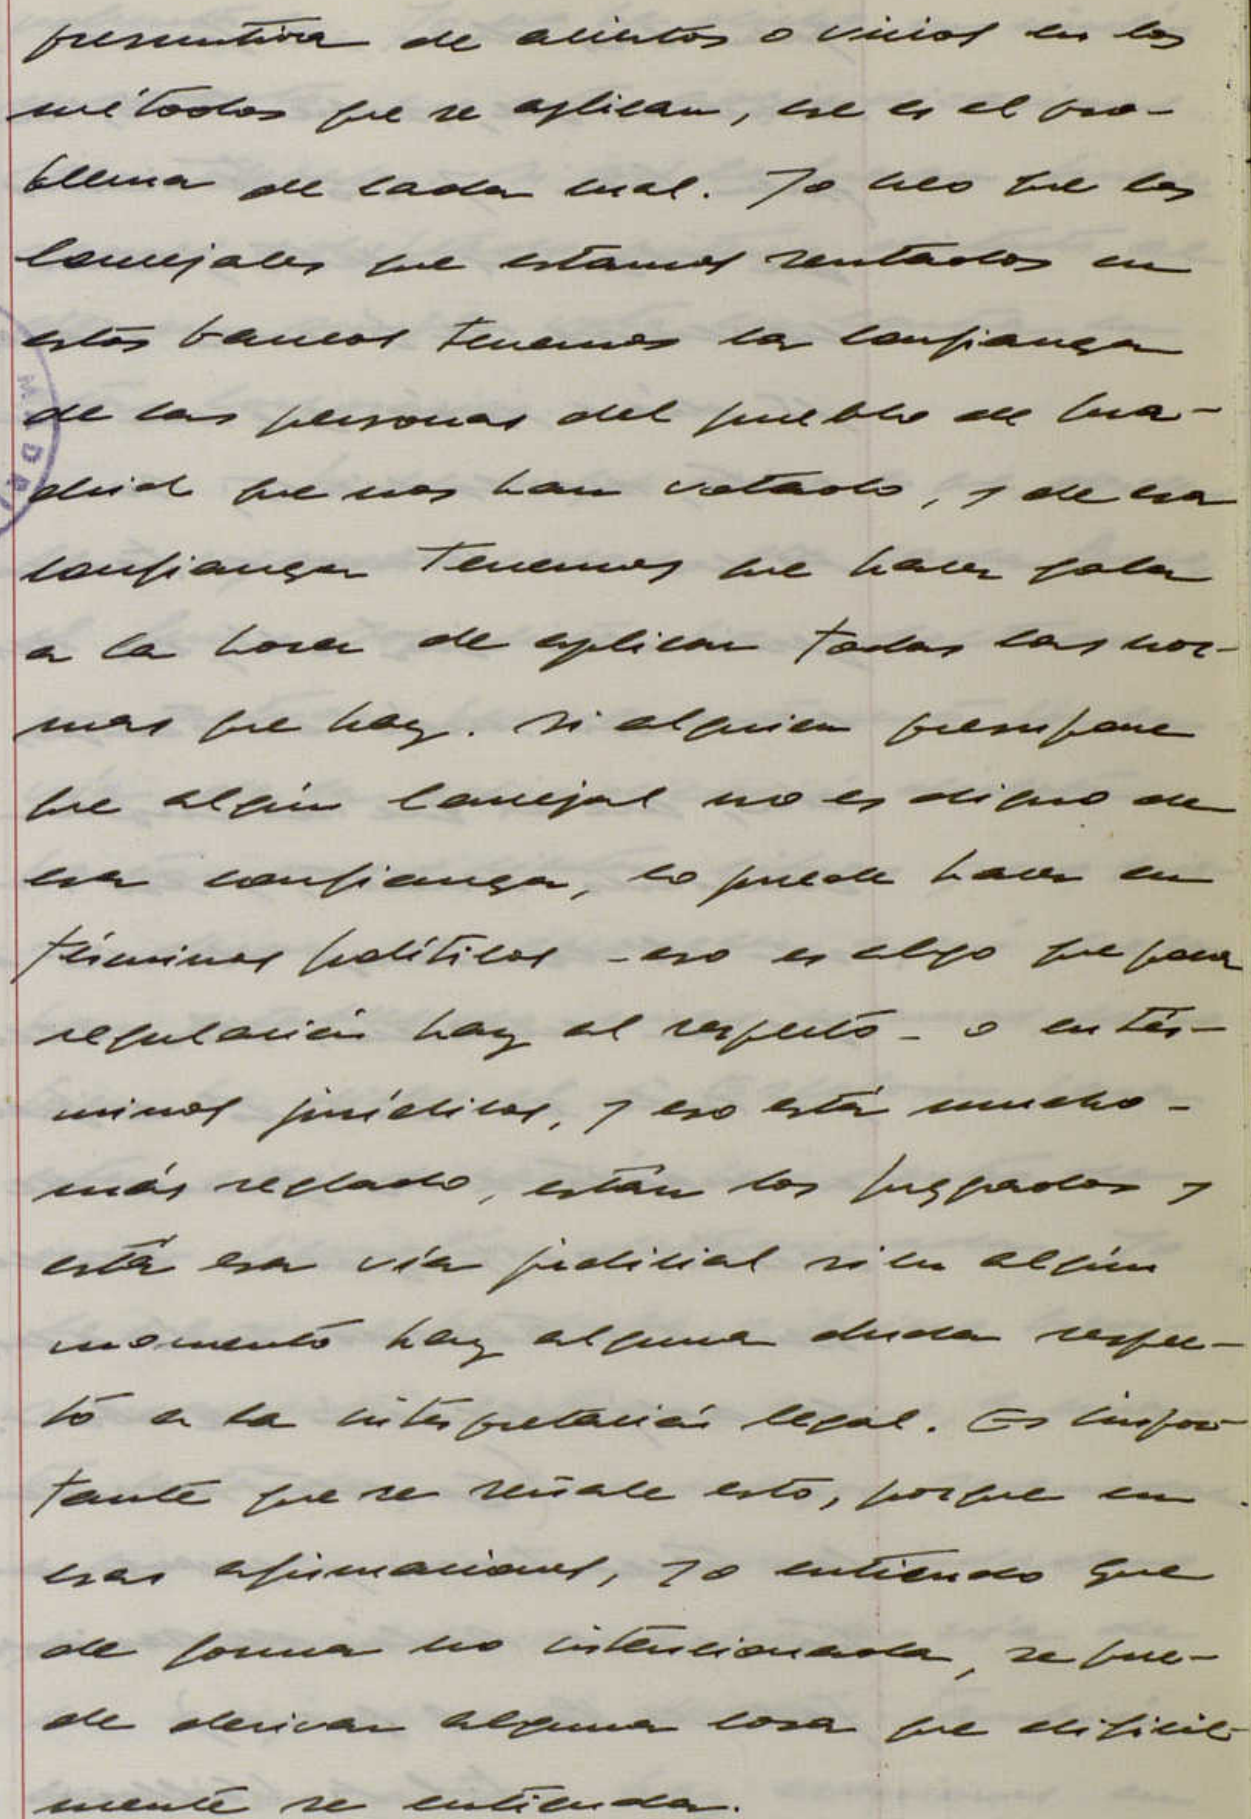 presuntiva de aciertos o vicios en los
métodos que se aplican, ese es el pro-
blema de cada cual. Yo creo que los
Concejales que estamos sentados en
estos bancos tenemos la confianza
de las personas del pueblo de Ma-
drid que nos han votado, y de esa
confianza tenemos que hacer gala
a la hora de aplicar todas las nor-
mas que hay. Si alguien presupone
que algún Concejal no es digno de
esa confianza, lo puede hacer en
términos políticos - eso es algo que poca
regulación hay al respecto - o en tér-
minos jurídicos, y eso está mucho -
más reglado, están los juzgados y
está esa vía judicial si en algún
momento hay alguna duda respec-
to a la interpretación legal. Es impor-
tante que se señale esto, porque en
esas afirmaciones, yo entiendo que
de forma no intencionada, se pue-
de derivar alguna cosa que dificil-
mente se entienda.
MADRI